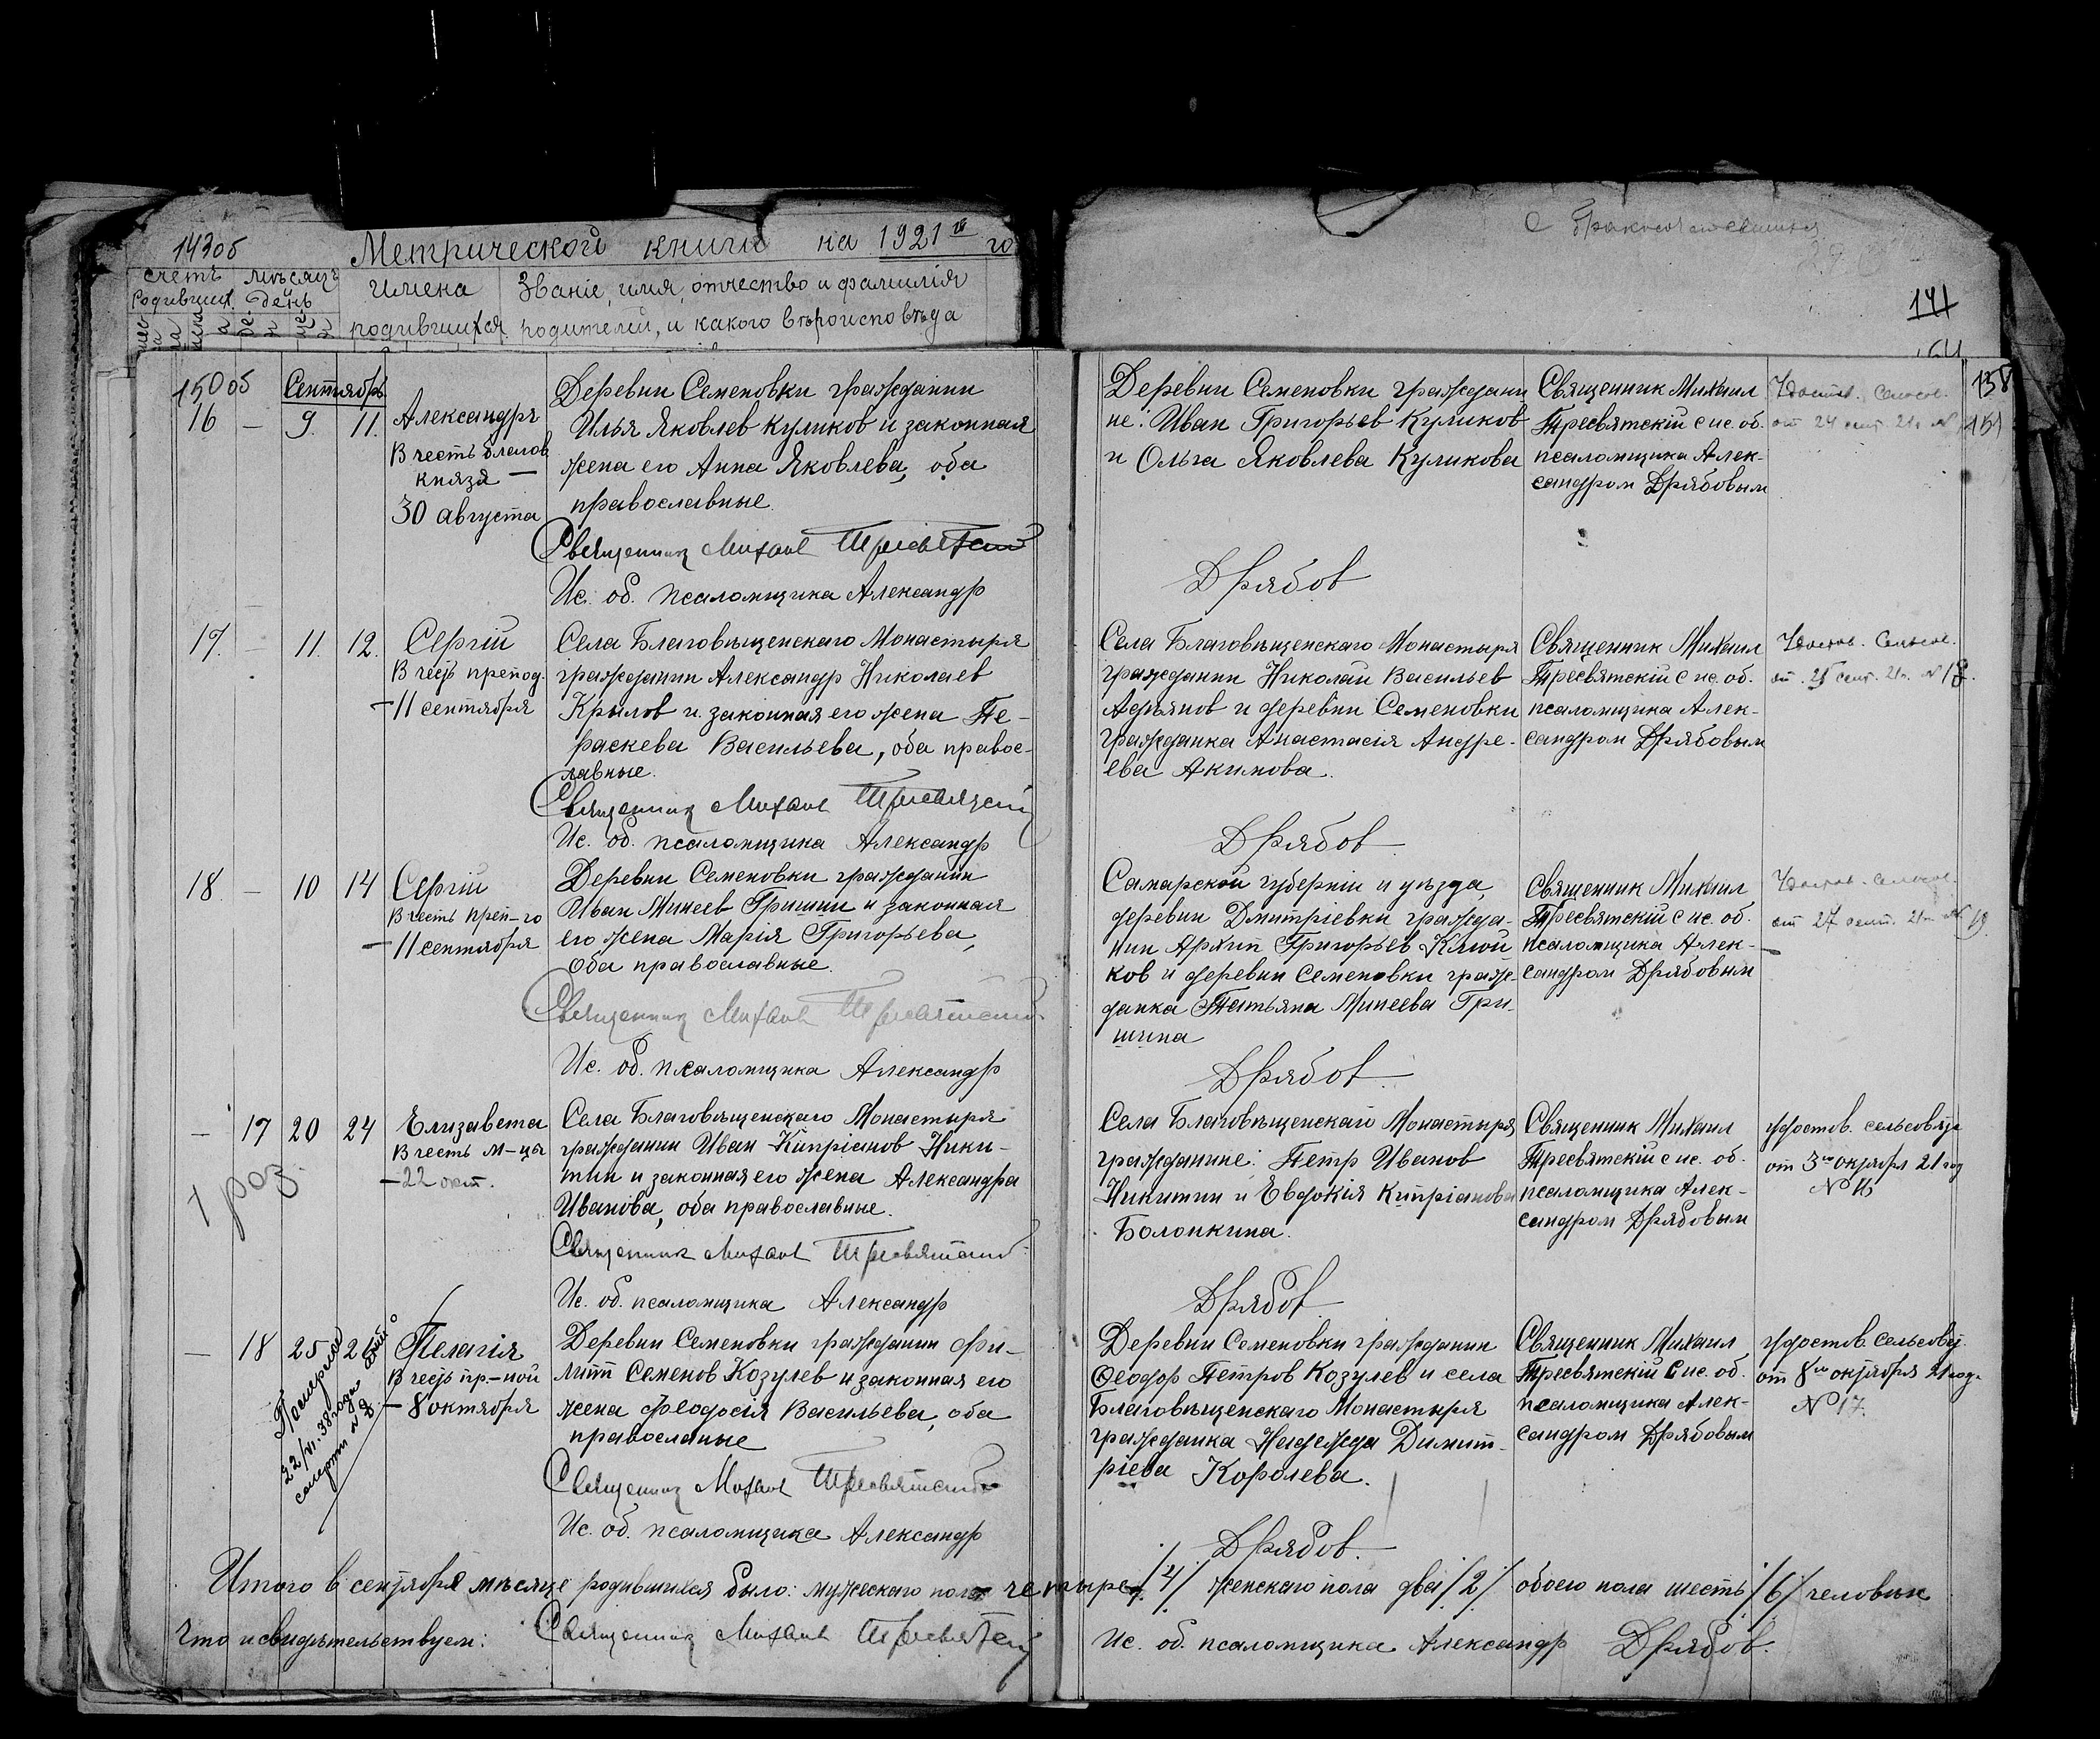 143об
Метрической книги на 1921 го
счетъ родившихся
мѣсяцъ и день
Имена родившихся
Званіе, имя, отчество и фамилія
родителей, и какого вѣроисповѣда
141
138
151
150об
Сентябрь
16 — 9. 11.
Александръ
В честь благов.
князя —
30 августа
Деревни Семеновки гражданин
Илья Яковлев Куликов и законная
жена его Анна Яковлева, оба
православные.
Священник Михаил Тресвятский
Ис. об. псаломщика Александр
Деревни Семеновки граждани
не: Иван Григорьев Куликов
и Ольга Яковлева Куликова
Дрябов
Священник Михаил
Тресвятскій с ис. об.
псаломщика Алек-
сандром Дрябовым
Удостов. Сельсов.
от 24 сент. 21г. №
17. — 11. 12.
Сергій
В честь препод.
– 11 сентября
Села Благовѣщенскаго Монастыря
гражданин Александр Николаев
Крылов и законная его жена Пе-
раскева Васильева, оба правос-
лавные.
Священник Михаил Тресвятский
Ис. об. псаломщика Александр
Села Благовѣщенскаго Монастыря
гражданин Николай Васильев
Адрьянов и деревни Семеновки
гражданка Анастасія Андре-
ева Акимова.
Дрябов
Священник Михаил
Тресвятскій с ис. об.
псаломщика Алек-
сандром Дрябовым
Удостов. Сельсов.
от 25 сент. 21г. № 18.
18 — 10 14
Сергій
В честь преп-го
– 11 сентября
Деревни Семеновки гражданин
Иван Минеев Гришин и законная
его жена Марія Григорьева,
Оба православные.
Священник Михаил Тресвятский
Ис. об. псаломщика Александр
Самарской губерніи и уѣзда,
деревни Дмитріевки гражда-
нин Архип Григорьев Клюй
ков и деревни Семеновки граж-
данка Татьяна Минеева Гри-
шина
Дрябов
Священник Михаил
Тресвятскій с ис. об.
псаломщика Алек-
сандром Дрябовым
Удостов. Сельсов.
от 27 сент. 21г. № 19
— 17 20 24
1 роз.
Елизавета
В честь м-цы
– 22 окт.
Села Благовѣщенскаго Монастыря
гражданин Иван Кипріанов Ники-
тин и законная его жена Александра
Иванова, оба православные.
Священник Михаил Тресвятский
Ис. об. псаломщика Александр
Села Благовѣщенскаго Монастыря
гражданине: Петр Иванов
Никитин и Евдокія Кипріанова
Болонкина.
Дрябов
Священник Михаил
Тресвятскій с ис. об.
псаломщика Алек-
сандром Дрябовым
Удостов. сельсовѣта
от 3го октября 21 год
№ 16
— 18 25 26
Померла
22/VI. 38 года
смерти № 9
Пелагія
В честь пр.-ной
– 8 октября
Деревни Семеновки гражданин Фи-
липп Семенов Козулев и законная его
жена Феодосія Васильева, оба
православные
Священник Михаил Тресвятский
Ис. об. псаломщика Александр
Деревни Семеновки гражданин
Ѳеодор Петров Козулев и села
Благовѣщенскаго Монастыря
гражданка Надежда Димит-
ріева Королева.
Дрябов.
Священник Михаил
Тресвятскій с ис. об.
псаломщика Алек-
сандром Дрябовым
Удостов. Сельсовѣт.
от 8го октября 21 год.
№ 17.
Итого в сентябре мѣсяце родившихся было: мужескаго пола четыре /4/ женскаго пола два /2/ обоего пола шесть /6/ человѣк
Что и свидѣтельствуем: Священник Михаил Тресвятский Ис. об. псаломщика Александр Дрябов.